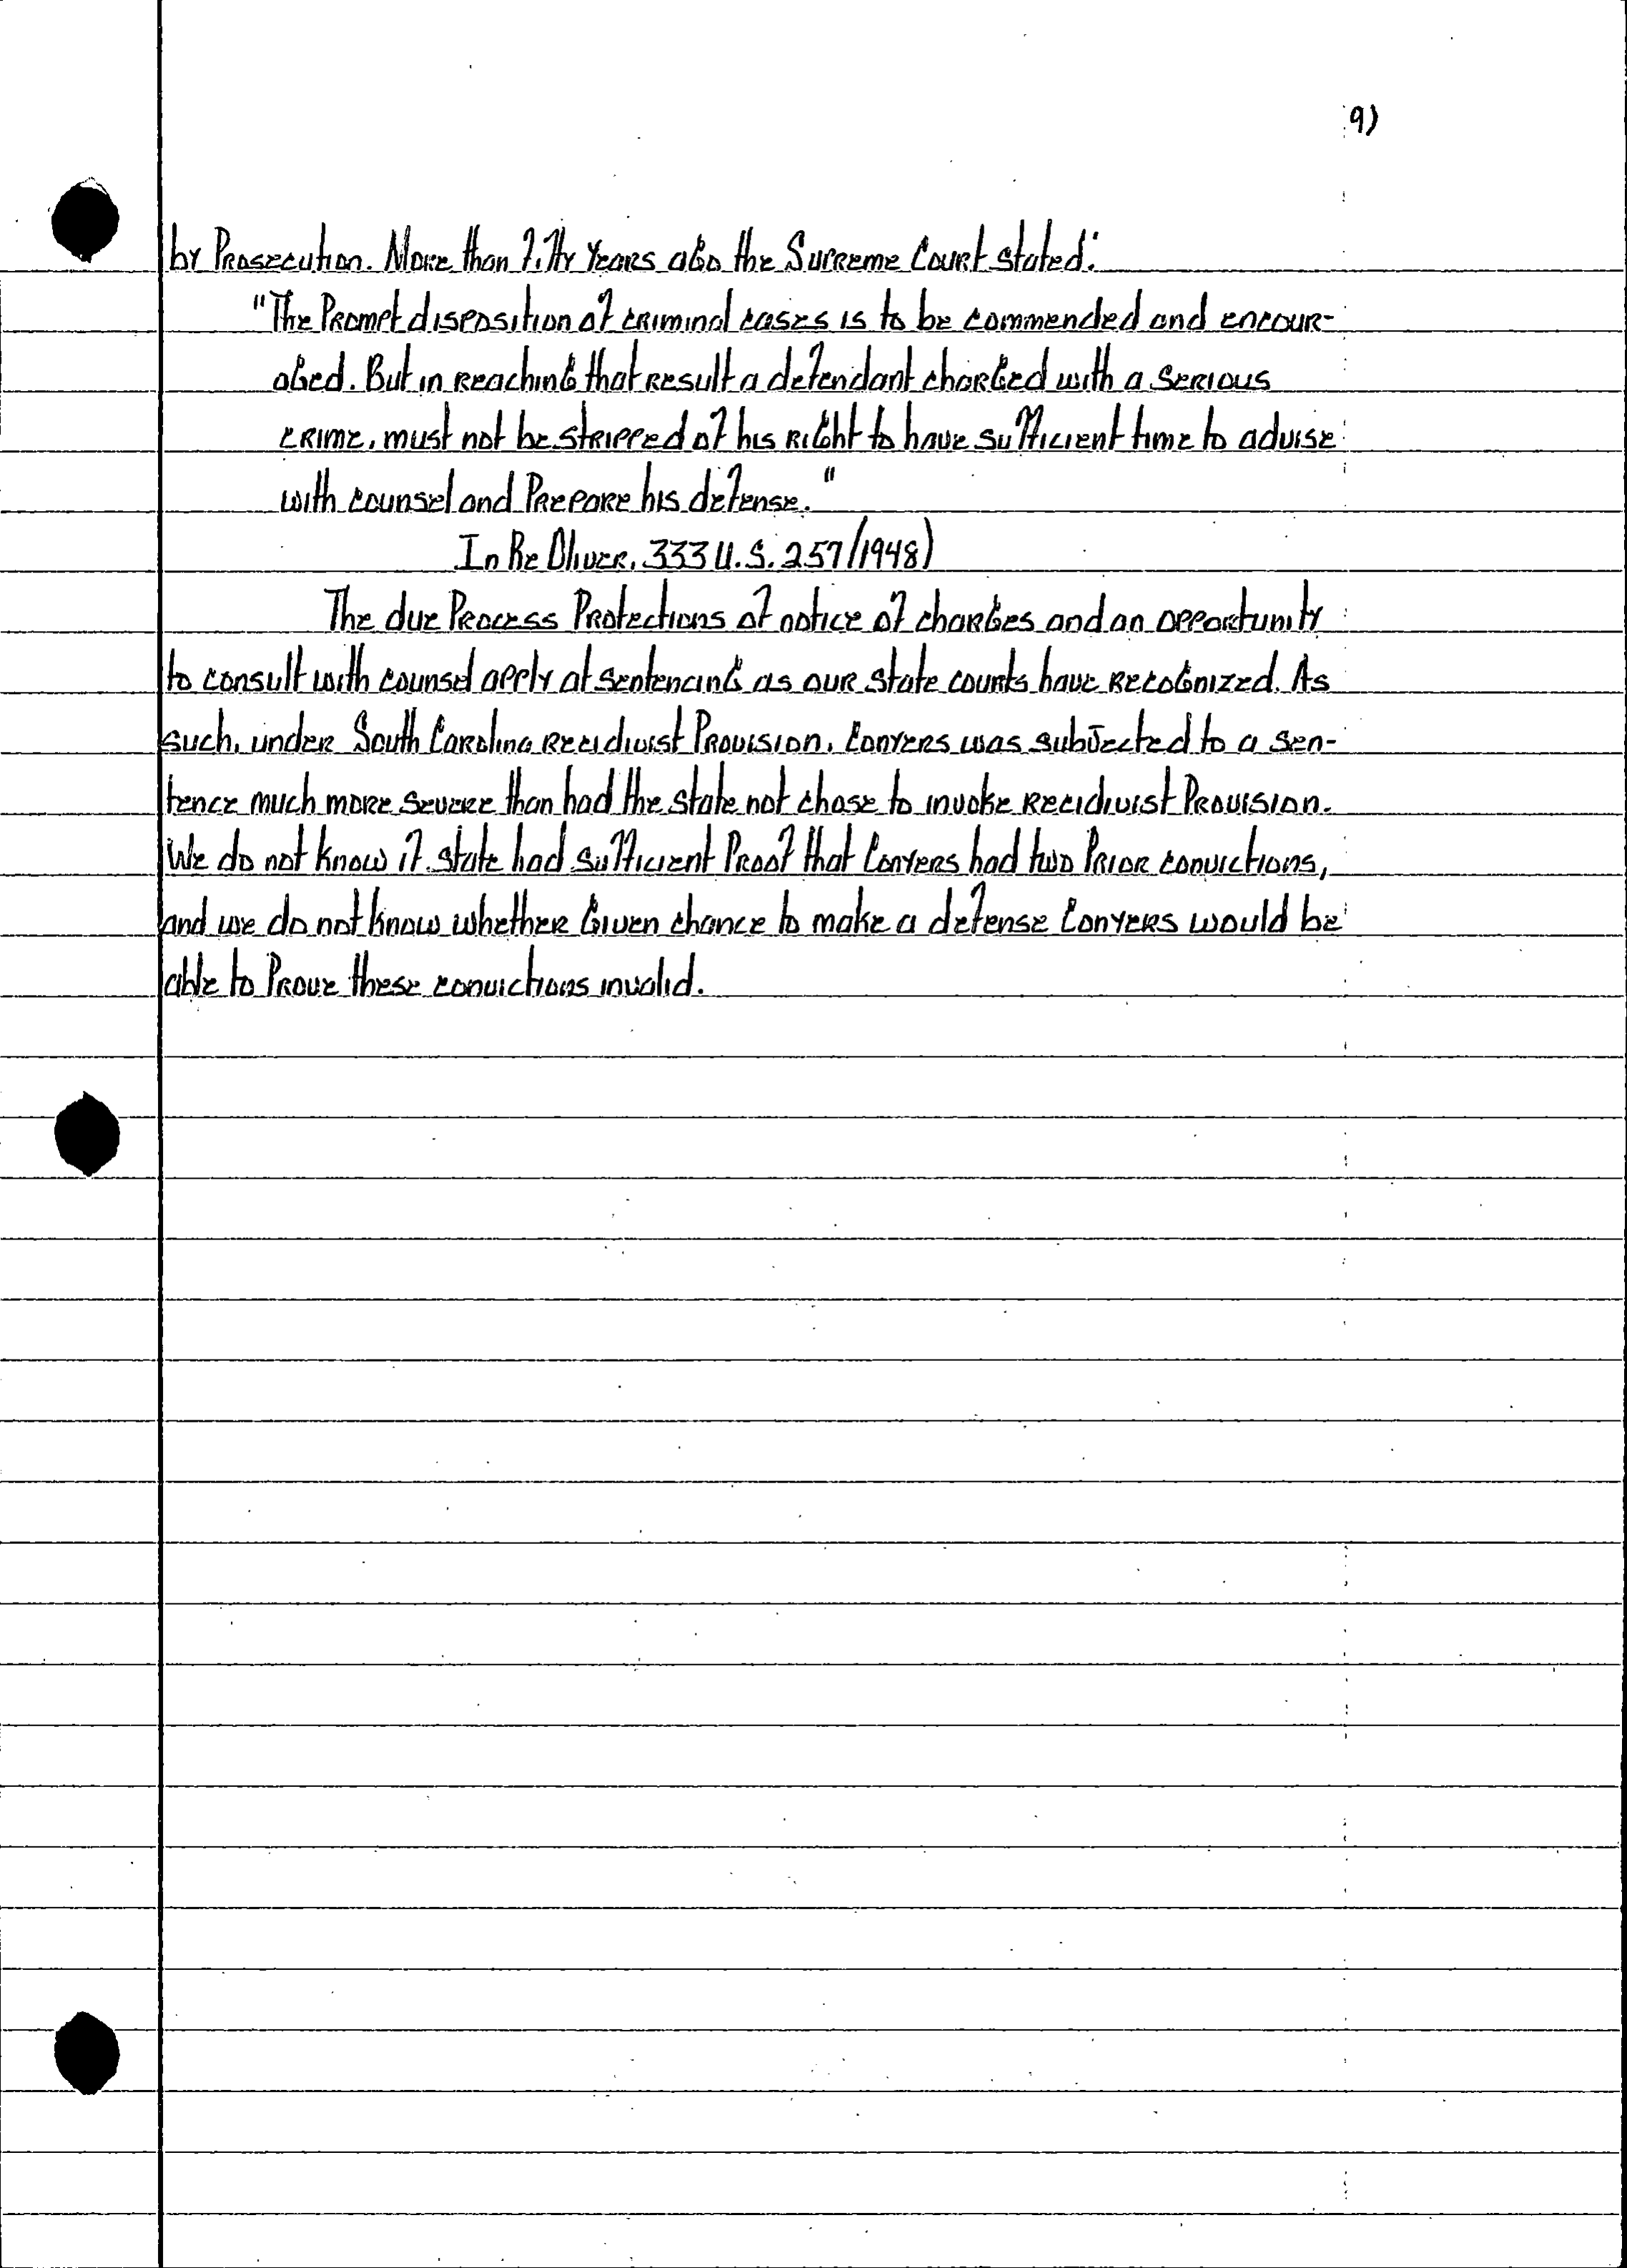 9)
by Prosecution. More than fifty years ago the Supreme Court stated:
"The Prompt disposition of criminal cases is to be commended and encour-
aged. But in reaching that result a defendant charged with a serious
crime, must not be stripped of his right to have sufficient time to advise
with counsel and Prepare his defense."
In Re Oliver, 333 U.S. 257 (1948)
The due Process Protections of notice of charges and an opportunity
to consult with counsel apply at sentencing as our state courts have recognized. As
such, under South Carolina recidivist Provision, Conyers was subjected to a sen-
tence much more severe than had the state not chose to invoke recidivist Provision.
We do not know if state had sufficient Proof that Conyers had two Prior convictions,
and we do not know whether Given chance to make a defense Conyers would be
able to Prove these convictions invalid.